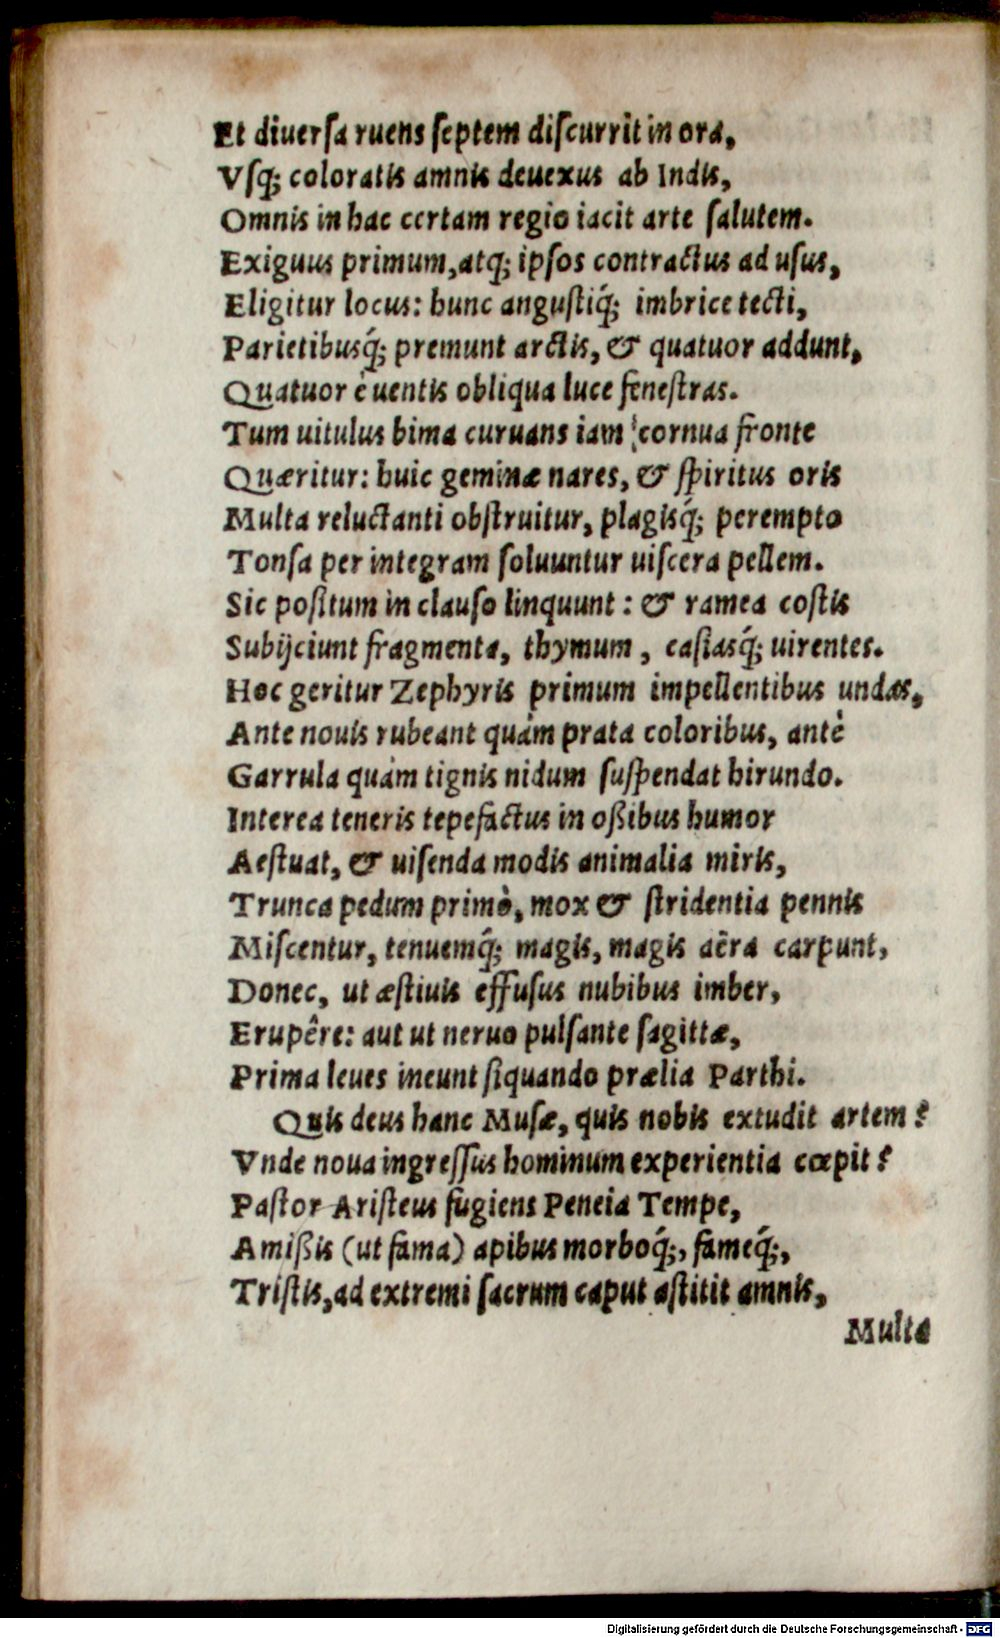 Et diuerſa ruens ſeptem diſcurrit in ora,
Vſq́; coloratis amnis deuexus ab Indis,
Omnis in hac certam regio iacit arte ſalutem.
Exiguus primum, atq; ipſos contractus ad uſus,
Eligitur locus: hunc anguſtiq́; imbrice tecti,
Parietibusq́; premunt arctis, & quatuor addunt,
Quatuor è uentis obliqua luce feneſtras.
Tum uitulus bima curuans iam cornua fronte
Quæritur: huic geminæ nares, & ſpiritus oris
Multa reluctanti obſtruitur, plagisq́; perempto
Tonſa per integram ſoluuntur uiſcera pellem.
Sic poſitum in clauſo linquunt: & ramea coſtis
Subijciunt fragmenta, thymum, caſiasq́; uirentes.
Hoc geritur Zephyris primum impellentibus undas,
Ante nouis rubeant quàm prata coloribus, antè
Garrula quàm tignis nidum ſuſpendat hirundo.
Interea teneris tepefactus in oßibus humor
Aeſtuat, & uiſenda modis animalia miris,
Trunca pedum primò, mox & ſtridentia pennis
Miſcentur, tenuemq́; magis, magis aëra carpunt,
Donec, ut æſtiuis effuſus nubibus imber,
Erupêre: aut ut neruo pulſante ſagittæ,
Prima leues ineunt ſiquando prælia Parthi.
Quis deus hanc Muſæ, quis nobis extudit artem?
Vnde noua ingreſſus hominum experientia cœpit?
Paſtor Ariſteus fugiens Peneia Tempe,
Amißis (ut fama) apibus morboq́;, fameq́;,
Triſtis, ad extremi ſacrum caput aſtitit amnis,
Multa
Digitalisierung gefördert durch die Deutsche Forschungsgemeinschaft - DFG